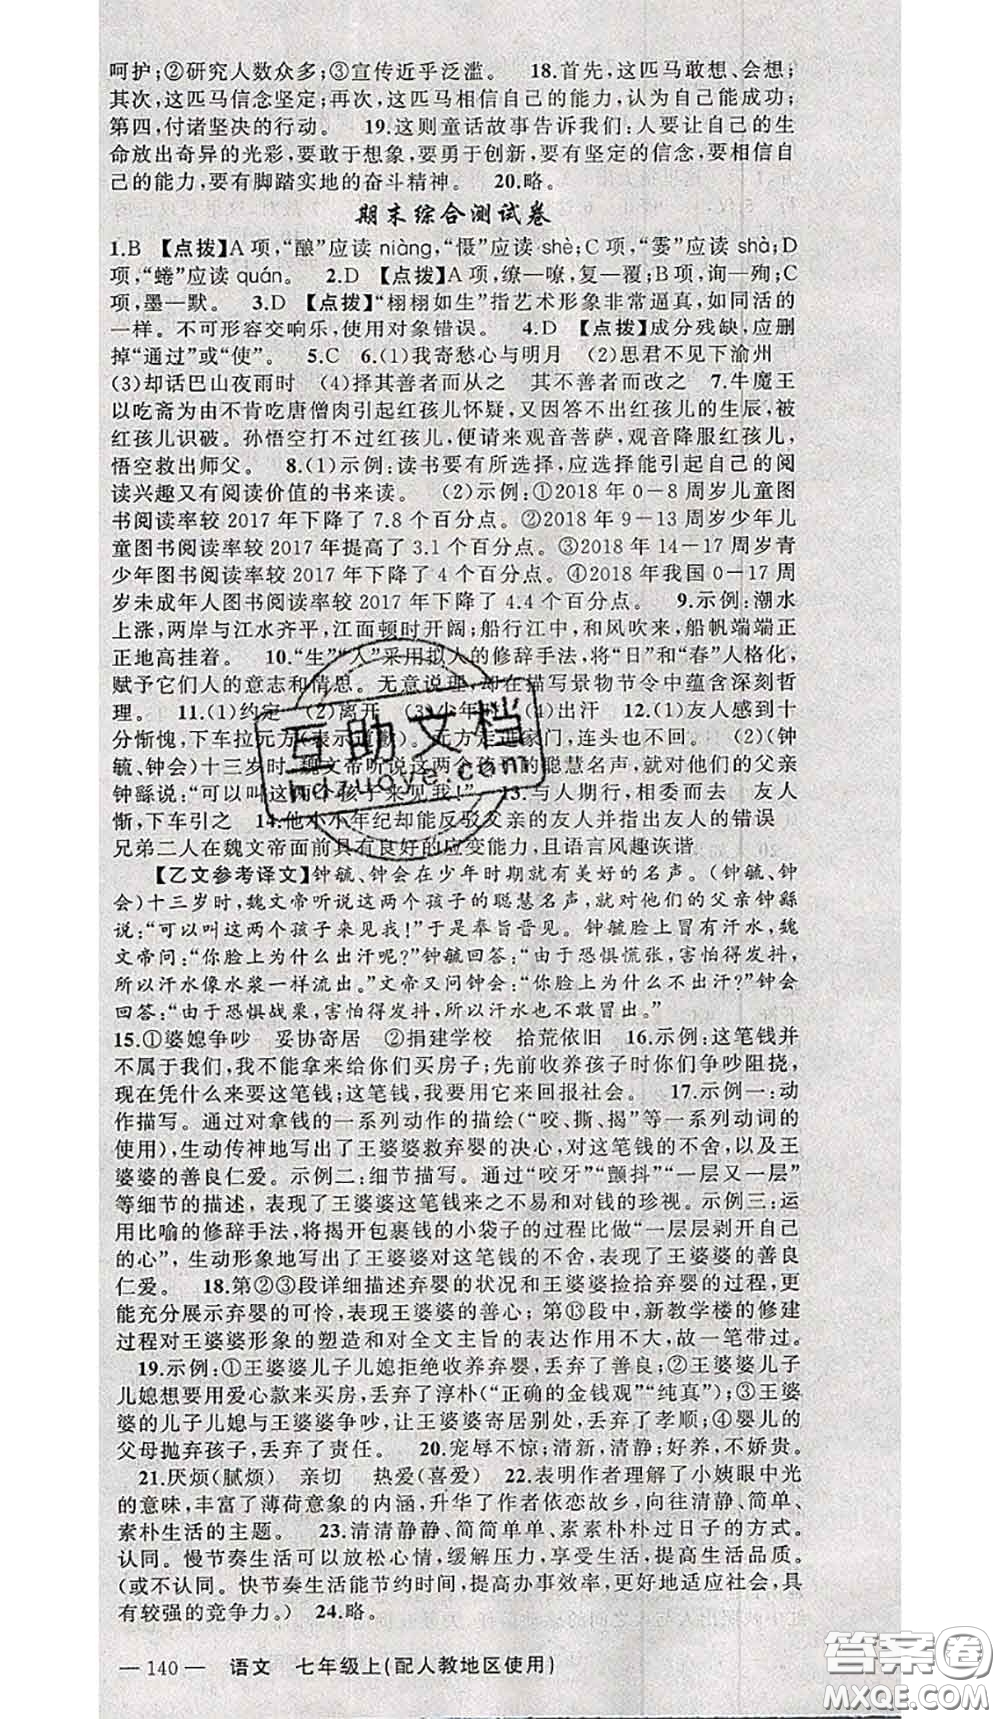 呵护；②研究人数众多；③宣传近乎泛滥。 18.首先，这匹马敢想、会想；
其次，这匹马信念坚定；再次，这匹马相信自己的能力，认为自己能成功；
第四，付诸坚决的行动。 19.这则童话故事告诉我们：人要让自己的生
命放出奇异的光彩，要敢于想象，要勇于创新，要有坚定的信念，要相信
自己的能力，要有脚踏实地的奋斗精神。 20.略。
期末综合测试卷
1.B 【点拨】A项，“酿”应读 niàng，“慑”应读 shè；C项，“霎”应读 shà；D
项，“蜷”应读 quán。 2.D 【点拨】A项，缭—嘹，复—覆；B项，询—殉；C
项，墨—默。 3.D 【点拨】“栩栩如生”指艺术形象非常逼真，如同活的
一样。不可形容交响乐，使用对象错误。 4.D 【点拨】成分残缺，应删
掉“通过”或“使”。 5.C 6.(1)我寄愁心与明月 (2)思君不见下渝州
(3)却话巴山夜雨时 (4)择其善者而从之 其不善者而改之 7.牛魔王
以吃斋为由不肯吃唐僧肉引起红孩儿怀疑，又因答不出红孩儿的生辰，被
红孩儿识破。孙悟空打不过红孩儿，便请来观音菩萨，观音降服红孩儿，
悟空救出师父。 8.(1)示例：读书要有所选择，应选择能引起自己的阅
读兴趣又有阅读价值的书来读。 (2)示例：①2018年0－8周岁儿童图
书阅读率较2017年下降了7.8个百分点。②2018年9－13周岁少年儿
童图书阅读率较2017年提高了3.1个百分点。③2018年14－17周岁青
少年图书阅读率较2017年下降了4个百分点。④2018年我国0－17周
岁未成年人图书阅读率较2017年下降了4.4个百分点。 9.示例：潮水
上涨，两岸与江水齐平，江面顿时开阔；船行江中，和风吹来，船帆端端正
正地高挂着。 10.“生”“入”采用拟人的修辞手法，将“日”和“春”人格化，
赋予它们人的意志和情思。无意说理，却在描写景物节令中蕴含深刻哲
理。 11.(1)约定 (2)离开 (3)少年时 (4)出汗 12.(1)友人感到十
分惭愧，下车拉元方(表示道歉)。元方走进家门，连头也不回。 (2)(钟
毓、钟会)十三岁时，魏文帝听说这两个孩子的聪慧名声，就对他们的父亲
钟繇说：“可以叫这两个孩子来见我！” 13.与人期行，相委而去 友人
惭，下车引之 14.他小小年纪却能反驳父亲的友人并指出友人的错误
兄弟二人在魏文帝面前具有良好的应变能力，且语言风趣诙谐
【乙文参考译文】钟毓、钟会在少年时期就有美好的名声。(钟毓、钟
会)十三岁时，魏文帝听说这两个孩子的聪慧名声，就对他们的父亲钟繇
说：“可以叫这两个孩子来见我！”于是奉旨晋见。钟毓脸上冒有汗水，魏
文帝问：“你脸上为什么出汗呢？”钟毓回答：“由于恐惧慌张，害怕得发抖，
所以汗水像水浆一样流出。”文帝又问钟会：“你脸上为什么不出汗？”钟会
回答：“由于恐惧战栗，害怕得发抖，所以汗水也不敢冒出。”
15.①婆媳争吵 妥协寄居 ②捐建学校 拾荒依旧 16.示例：这笔钱并
不属于我们，我不能拿来给你们买房子；先前收养孩子时你们争吵阻挠，
现在凭什么来要这笔钱；这笔钱，我要用它来回报社会。 17.示例一：动
作描写。通过对拿钱的一系列动作的描绘(“咬、撕、揭”等一系列动词的
使用)，生动传神地写出了王婆婆救弃婴的决心，对这笔钱的不舍，以及王
婆婆的善良仁爱。示例二：细节描写。通过“咬牙”“颤抖”“一层又一层”
等细节的描述，表现了王婆婆这笔钱来之不易和对钱的珍视。示例三：运
用比喻的修辞手法，将打开包裹钱的小袋子的过程比做“一层层剥开自己
的心”，生动形象地写出了王婆婆对这笔钱的不舍，表现了王婆婆的善良
仁爱。 18.第②③段详细描述弃婴的状况和王婆婆捡拾弃婴的过程，更
能充分展示弃婴的可怜，表现王婆婆的善心；第⑬段中，新教学楼的修建
过程对王婆婆形象的塑造和对全文主旨的表达作用不大，故一笔带过。
19.示例：①王婆婆儿子儿媳拒绝收养弃婴，丢弃了善良；②王婆婆儿子
儿媳想要用爱心款来买房，丢弃了淳朴(“正确的金钱观”“纯真”)；③王婆
婆的儿子儿媳与王婆婆争吵，让王婆婆寄居别处，丢弃了孝顺；④婴儿的
父母抛弃孩子，丢弃了责任。 20.宠辱不惊；清新，清静；好养，不娇贵。
21.厌烦(腻烦) 亲切 热爱(喜爱) 22.表明作者理解了小姨眼中光
的意味，丰富了薄荷意象的内涵，升华了作者依恋故乡，向往清静、简单、
素朴生活的主题。 23.清清静静、简简单单、素素朴朴过日子的方式。
认同。慢节奏生活可以放松心情，缓解压力，享受生活，提高生活品质。
(或不认同。快节奏生活能节约时间，提高办事效率，更好地适应社会，具
有较强的竞争力。) 24.略。
互助文档
hdzuoye.com
— 140 — 语文 七年级上(配人教地区使用)
答案圈
MXQE.COM